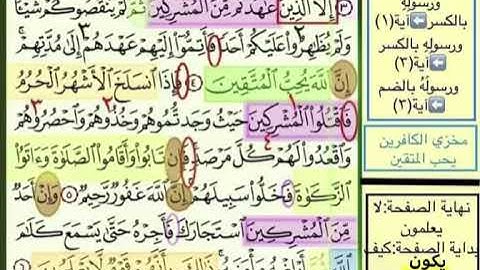 إِلَّا ٱلَّذِينَ عَـٰهَدتُّم مِّنَ ٱلْمُشْرِكِينَ ثُمَّ لَمْ يَنقُصُوكُمْ شَيْـًٔا
وَلَمْ يُظَـٰهِرُوا۟ عَلَيْكُمْ أَحَدًا فَأَتِمُّوٓا۟ إِلَيْهِمْ عَهْدَهُمْ إِلَىٰ مُدَّتِهِمْ
إِنَّ ٱللَّهَ يُحِبُّ ٱلْمُتَّقِينَ ٤ فَإِذَا ٱنسَلَخَ ٱلْأَشْهُرُ ٱلْحُرُمُ
فَٱقْتُلُوا۟ ٱلْمُشْرِكِينَ حَيْثُ وَجَدتُّمُوهُمْ وَخُذُوهُمْ وَٱحْصُرُوهُمْ
وَٱقْعُدُوا۟ لَهُمْ كُلَّ مَرْصَدٍ فَإِن تَابُوا۟ وَأَقَامُوا۟ ٱلصَّلَوٰةَ وَءَاتَوُا۟
ٱلزَّكَوٰةَ فَخَلُّوا۟ سَبِيلَهُمْ إِنَّ ٱللَّهَ غَفُورٌ رَّحِيمٌ ٥ وَإِنْ أَحَدٌ
مِّنَ ٱلْمُشْرِكِينَ ٱسْتَجَارَكَ فَأَجِرْهُ حَتَّىٰ يَسْمَعَ كَلَـٰمَ
ورسوله
بالكسر⬅آية(١)
ورسوله بالكسر
⬅آية(٣)
ورسولُهُ بالضم
⬅آية(٣)
مخزي الكافرين
يحب المتقين
نهاية الصفحة:لا
يعلمون
بداية الصفحة:كيف
يكون